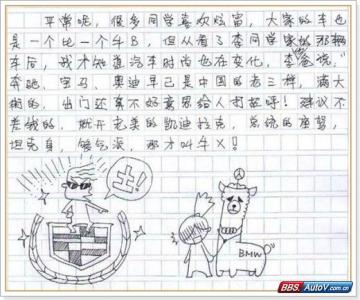 平常呢，很多同学喜欢炫富，大家的车也
是一个比一个牛B，但从看了李同学家的那辆
车后，我才知道汽车时尚也在变化，李爸说，"
奔驰、宝马、奥迪早已是中国的老三样，满大
街的，出门还真不好意思给人打招呼！建议不
差钱的，就开老美的凯迪拉克，总统的座驾，
坦克身，够气派，那才叫牛X！
土！
BMW
BBS.AutoV.com.cn